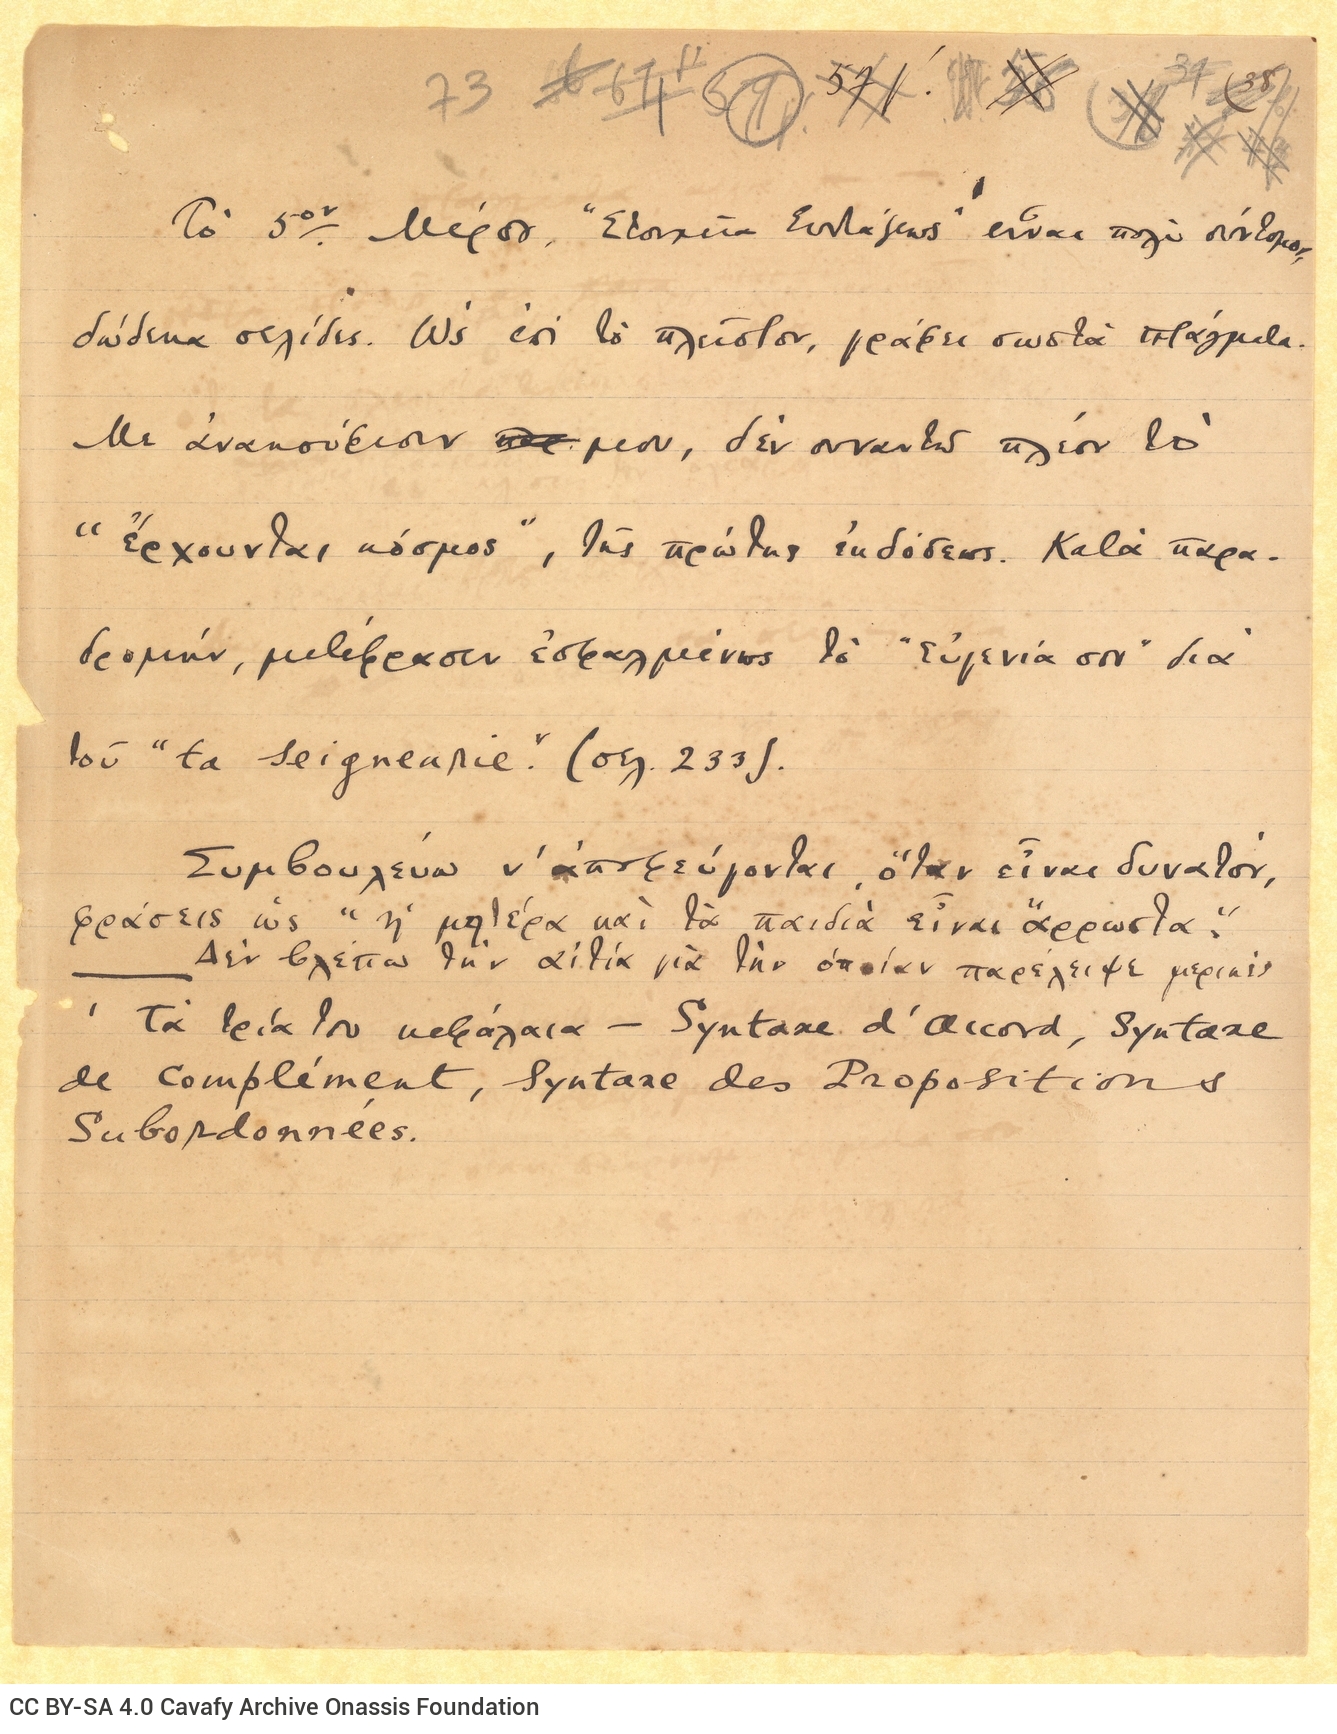 73 67 57 57/. 37 (38
Τὸ 5ον Μέρος, "Στοιχεῖα Συντάξεως"¹ εἶναι πολὺ σύντομον,
δώδεκα σελίδες. Ὡς ἐπὶ τὸ πλεῖστον, γράφει σωστὰ πράγματα.
Με ἀνακούφισιν μου, δὲν συναντῶ πλέον τὸ
"ἔρχουνται κόσμος", τῆς πρώτης ἐκδόσεως. Κατὰ παρα-
δρομήν, μετέφρασεν ἐσφαλμένως τὸ "εὐγενία σου" διὰ
τοῦ "ta seigneurie". (σελ. 233).
Συμβουλεύω ν' ἀποφεύγονται, ὅταν εἶναι δυνατόν,
φράσεις ὡς "ἡ μητέρα καὶ τὰ παιδιὰ εἶναι ἄρρωστα".
Δὲν βλέπω τὴν αἰτία γιὰ τὴν ὁποίαν παρέλειψε μερικὲς
¹ Τὰ τρία του κεφάλαια — Syntaxe d'Accord, Syntaxe
de Complément, Syntaxe des Propositions
Subordonnées.
CC BY-SA 4.0 Cavafy Archive Onassis Foundation